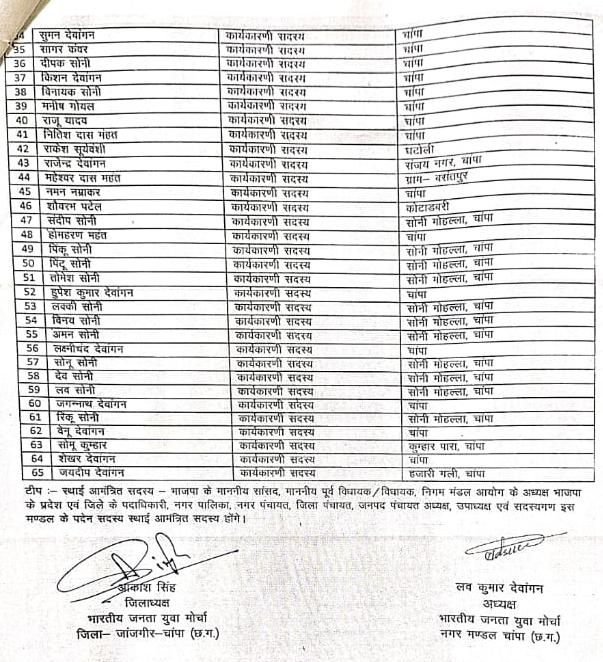 34 सुमन देवांगन कार्यकारणी सदस्य चांपा
35 सागर कंवर कार्यकारणी सदस्य चांपा
36 दीपक सोनी कार्यकारणी सदस्य चांपा
37 किशन देवांगन कार्यकारणी सदस्य चांपा
38 विनायक सोनी कार्यकारणी सदस्य चांपा
39 मनीष गोयल कार्यकारणी सदस्य चांपा
40 राजू यादव कार्यकारणी सदस्य चांपा
41 नितिश दास महंत कार्यकारणी सदस्य चांपा
42 राकेश सूर्यवंशी कार्यकारणी सदस्य घटोली
43 राजेन्द्र देवांगन कार्यकारणी सदस्य संजय नगर, चांपा
44 महेश्वर दास महंत कार्यकारणी सदस्य ग्राम– बसंतपुर
45 नमन नम्राकर कार्यकारणी सदस्य चांपा
46 शौवरभ पटेल कार्यकारणी सदस्य कोटाडबरी
47 संदीप सोनी कार्यकारणी सदस्य सोनी मोहल्ला, चांपा
48 होमहरण महंत कार्यकारणी सदस्य चांपा
49 पिंकू सोनी कार्यकारणी सदस्य सोनी मोहल्ला, चांपा
50 पिंटू सोनी कार्यकारणी सदस्य सोनी मोहल्ला, चांपा
51 तोमेश सोनी कार्यकारणी सदस्य सोनी मोहल्ला, चांपा
52 हुपेश कुमार देवांगन कार्यकारणी सदस्य चांपा
53 लक्की सोनी कार्यकारणी सदस्य सोनी मोहल्ला, चांपा
54 विनय सोनी कार्यकारणी सदस्य सोनी मोहल्ला, चांपा
55 अमन सोनी कार्यकारणी सदस्य सोनी मोहल्ला, चांपा
56 लक्ष्मीचंद देवांगन कार्यकारणी सदस्य चांपा
57 सोनू सोनी कार्यकारणी सदस्य सोनी मोहल्ला, चांपा
58 देव सोनी कार्यकारणी सदस्य सोनी मोहल्ला, चांपा
59 लव सोनी कार्यकारणी सदस्य सोनी मोहल्ला, चांपा
60 जगन्नाथ देवांगन कार्यकारणी सदस्य चांपा
61 रिंकू सोनी कार्यकारणी सदस्य सोनी मोहल्ला, चांपा
62 वेनू देवांगन कार्यकारणी सदस्य चांपा
63 सोमू कुम्हार कार्यकारणी सदस्य कुम्हार पारा, चांपा
64 शेखर देवांगन कार्यकारणी सदस्य चांपा
65 जयदीप देवांगन कार्यकारणी सदस्य हजारी गली, चांपा
टीप :– स्थाई आमंत्रित सदस्य – भाजपा के माननीय सांसद, माननीय पूर्व विधायक/विधायक, निगम मंडल आयोग के अध्यक्ष भाजपा
के प्रदेश एवं जिले के पदाधिकारी, नगर पालिका, नगर पंचायत, जिला पंचायत, जनपद पंचायत अध्यक्ष, उपाध्यक्ष एवं सदस्यगण इस
मण्डल के पदेन सदस्य स्थाई आमंत्रित सदस्य होंगे।
आकाश सिंह
जिलाध्यक्ष
भारतीय जनता युवा मोर्चा
जिला– जांजगीर–चांपा (छ.ग.)
लव कुमार देवांगन
अध्यक्ष
भारतीय जनता युवा मोर्चा
नगर मण्डल चांपा (छ.ग.)